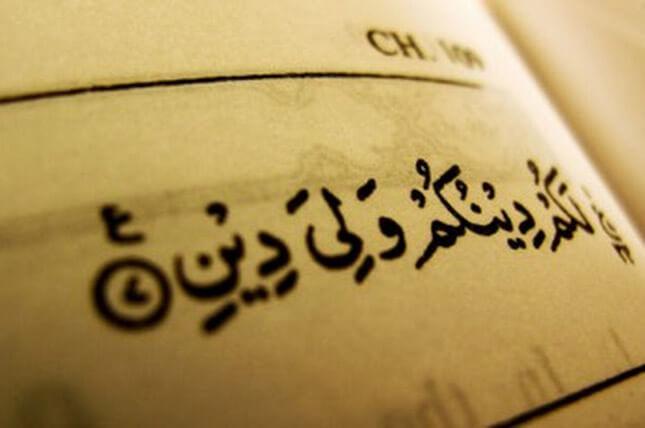 CH. 109
لَكُمْ دِيْنُكُمْ وَلِىَ دِيْنِ ٧ ع